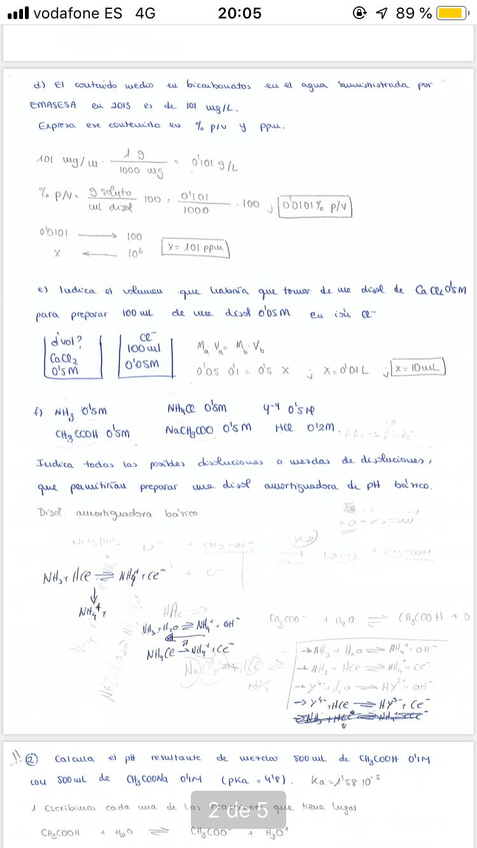 vodafone ES 4G 20:05 89 %
d) El contenido medio en bicarbonatos en el agua suministrada por
EMASESA en 2015 es de 101 mg/L.
Expresa ese contenido en % p/v y ppm.
101 mg/L · 1 g / 1000 mg = 0'101 g/L
% p/v = g soluto / mL disol · 100 = 0'101 / 1000 · 100 ; 0'0101% p/v
0'0101 → 100
x ← 10⁶ x = 101 ppm
e) Indica el volumen que habría que tomar de una disol de CaCl₂ 0'5M
para preparar 100 mL de una disol 0'05M en ión Cl⁻
¿vol?
CaCl₂
0'5M
Cl⁻
100 ml
0'05M
Ma Va = Mb · Vb
0'05 0'1 = 0'5 x ; x = 0'01 L ; x = 10 mL
f) NH₃ 0'5M NH₄Cl 0'5M Y⁻⁴ 0'5M
CH₃COOH 0'5M NaCH₃COO 0'5M HCl 0'2M.
Indica todas las posibles disoluciones o mezclas de disoluciones,
que permitirían preparar una disol amortiguadora de pH básico.
Disol. amortiguadora básica
NH₃ + HCl ⇌ NH₄⁺ + Cl⁻
NH₄⁺
NH₃ + H₂O ⇌ NH₄⁺ + OH⁻
NH₄Cl → NH₄⁺ + Cl⁻
CH₃COO⁻ + H₂O ⇌ CH₃COOH + O
→ NH₃ + H₂O ⇌ NH₄⁺ + OH⁻
→ NH₃ + HCl ⇌ NH₄⁺ + Cl⁻
→ Y⁴⁻ + H₂O ⇌ HY³⁻ + OH⁻
→ Y⁴⁻ + HCl ⇌ HY³⁻ + Cl⁻
!! ② Calcula el pH resultante de mezclar 500 mL de CH₃COOH 0'1M
con 500 mL de CH₃COONa 0'1M (pKa = 4'8). Ka = 1'58·10⁻⁵
2 de 5
1. Escribimos cada una de las reacciones que tiene lugar
CH₃COOH + H₂O ⇌ CH₃COO⁻ + H₃O⁺